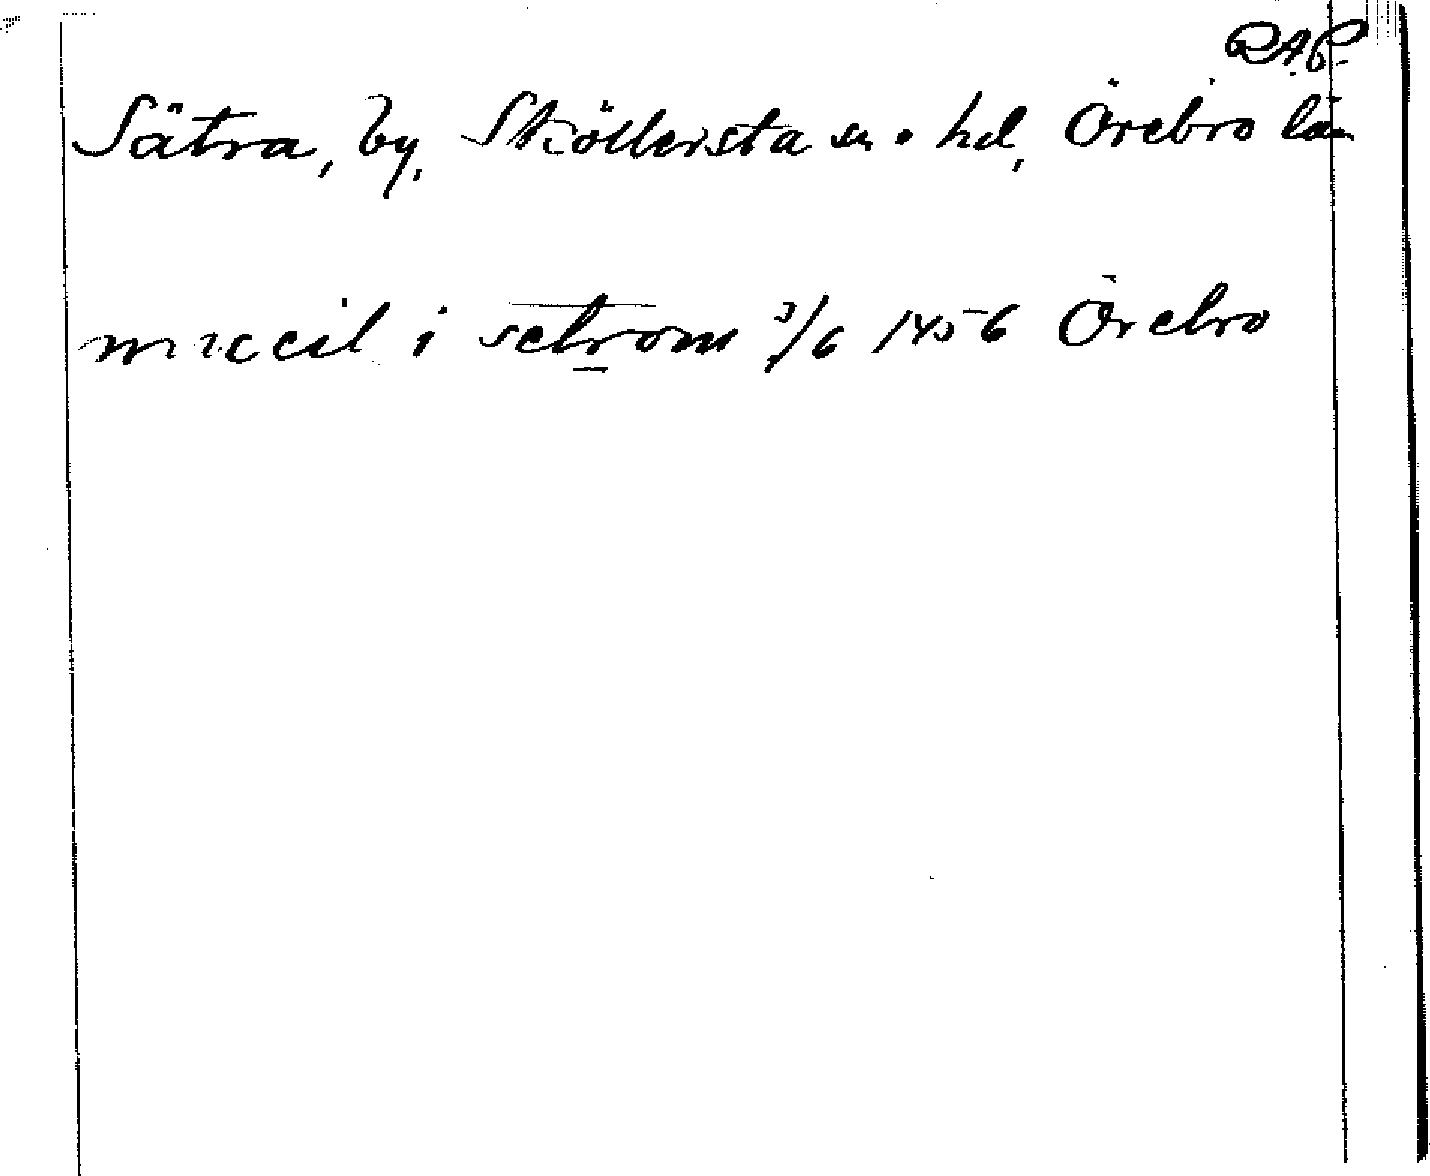 RAP.
Sätra, by, Sköllersta sn o hd, Örebro län
i setrom 3/6 1456 Örebro